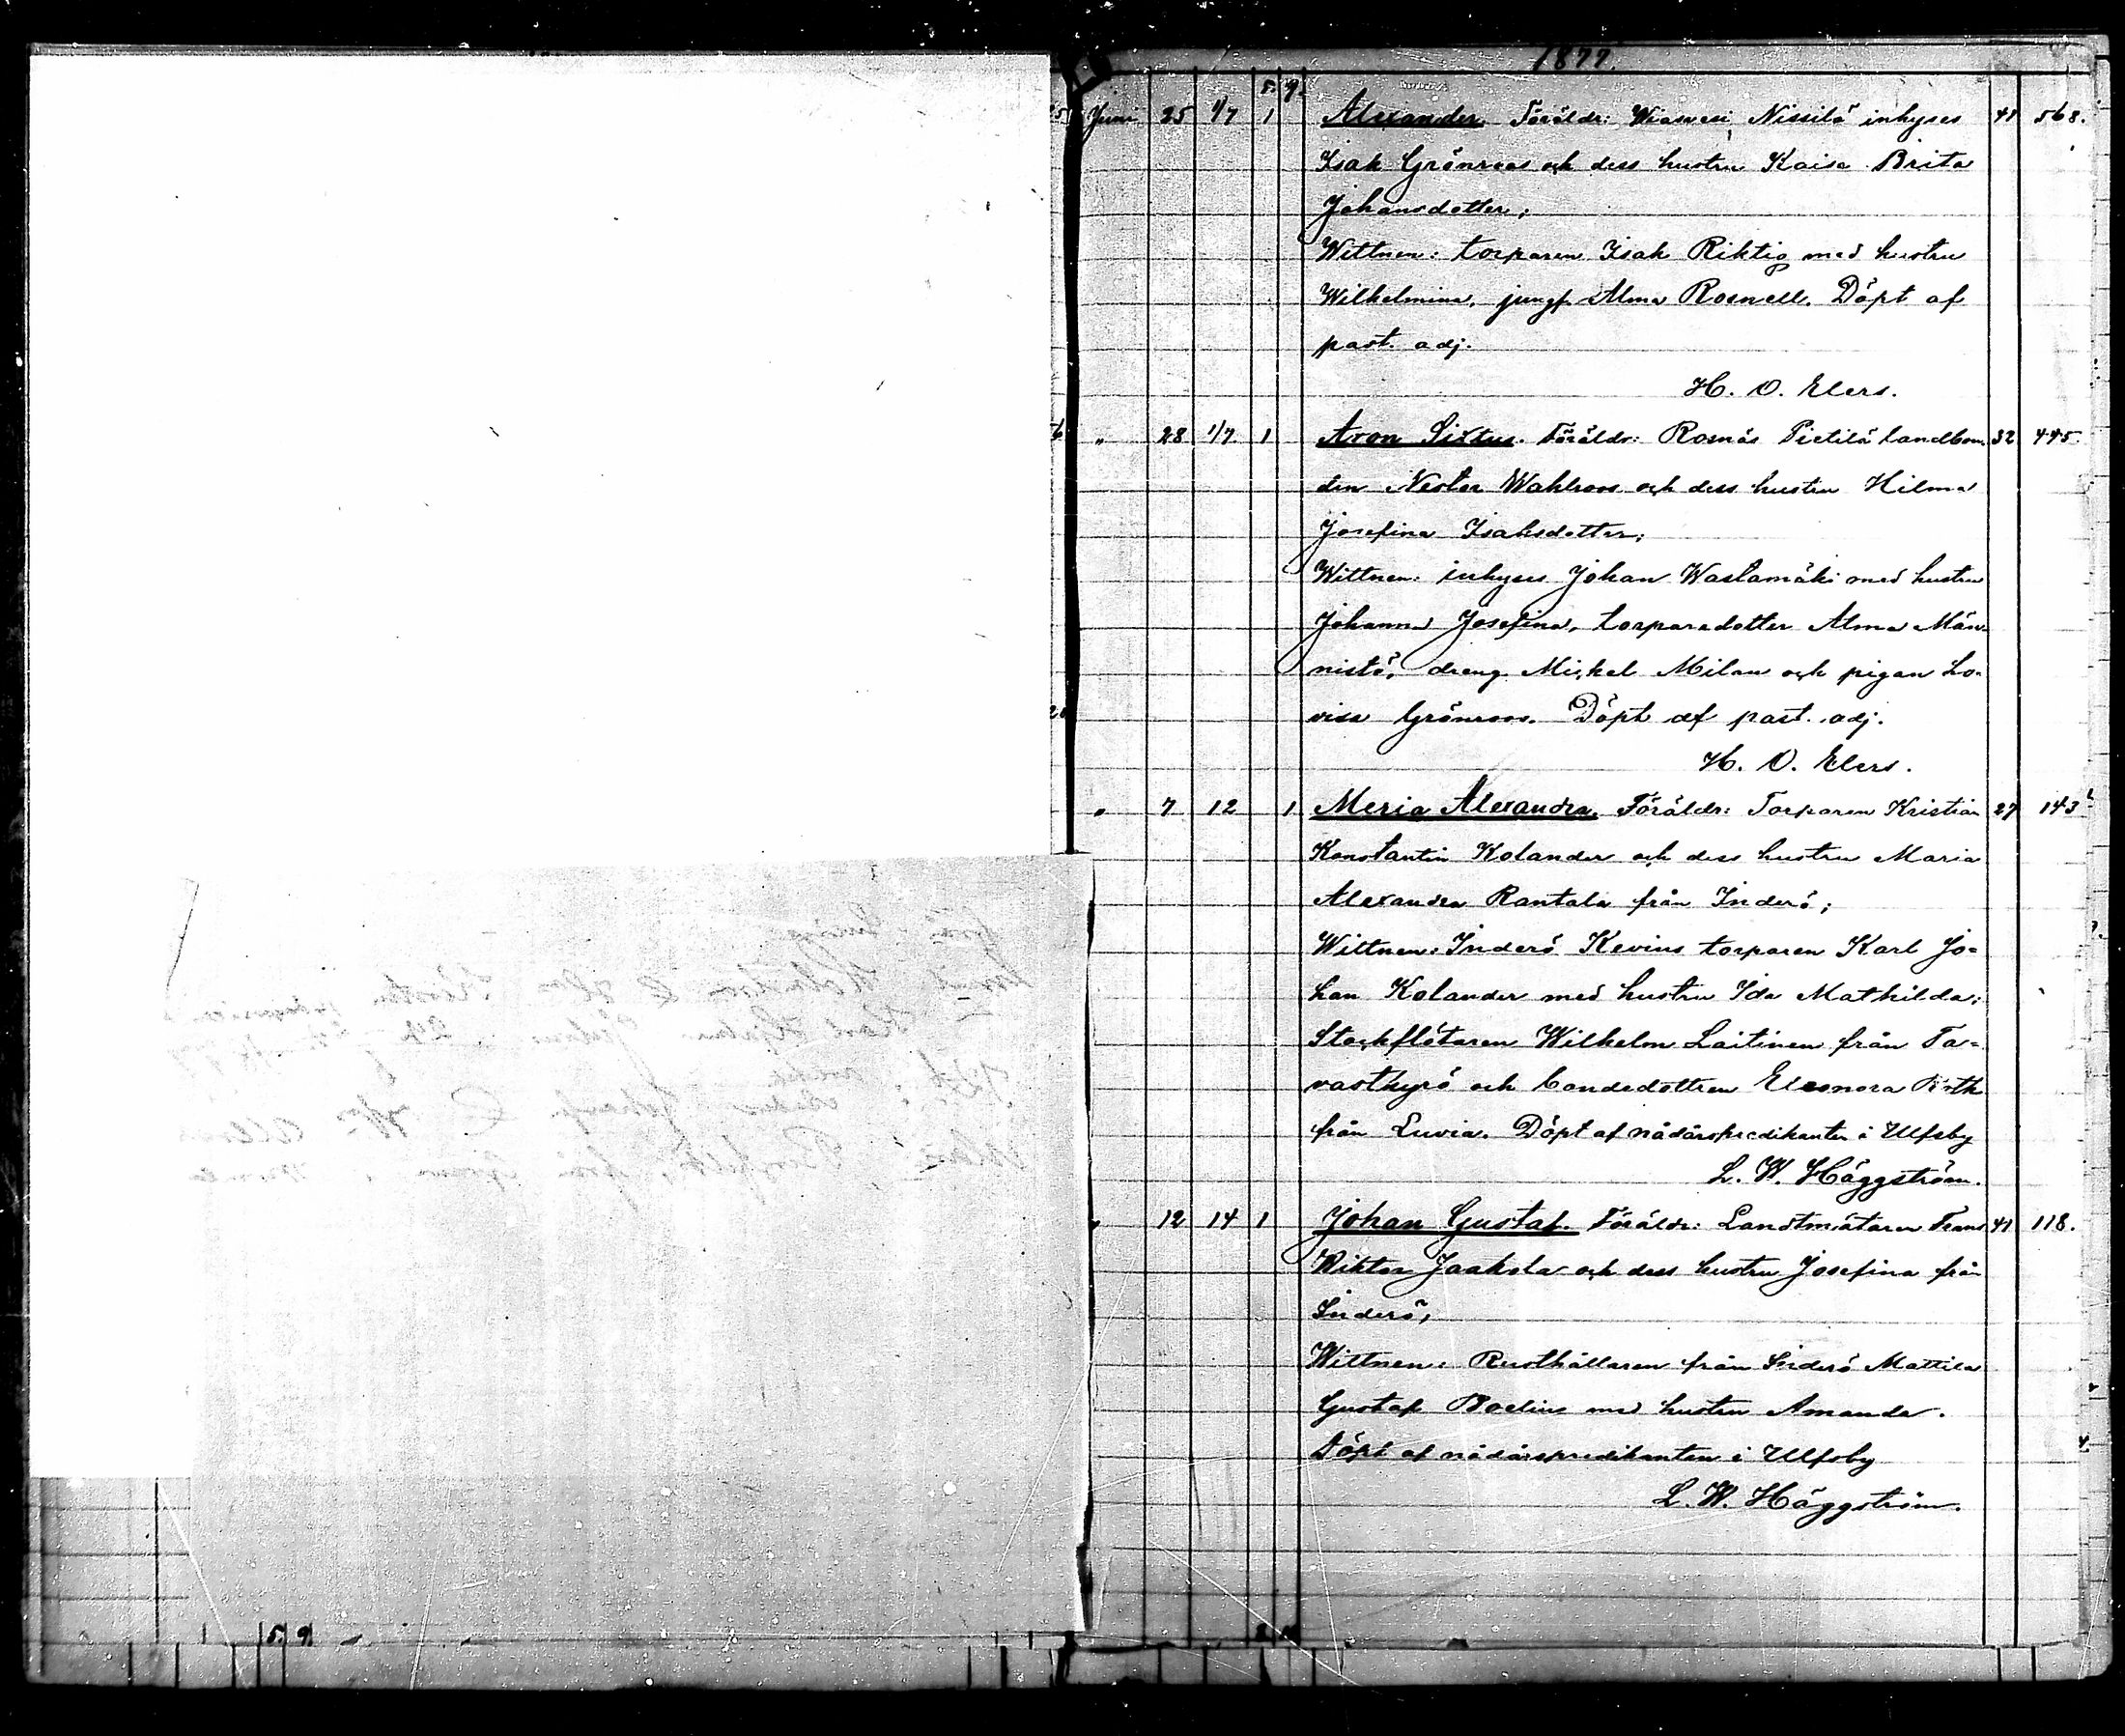 1877.
5. 9.
Juni 25 1/7 1 Alexander. Föräldr: Wiaswesi Nissilä inhyses 41 568.
Isak Grönroos och dess hustru Kaisa Brita
Johansdotter;
Wittnen: torparen Isak Riktig med hustru
Wilhelmina, jungf. Alma Rosnell. Döpt af
past. adj.
H. O. Elers.
" 28 1/7 1 Aron Sixtus. Föräldr: Rosnäs Pietilä landbon 32 445.
den Nestor Wahlroos och dess hustru Hilma
Josefina Isaksdotter;
Wittnen: inhyses Johan Wastamäki med hustru
Johanna Josefina, torparedotter Alma Män-
nistö, dreng Mickel Milan och pigan Lo-
visa Grönroos. Döpt af past. adj.
H. O. Elers.
" 7 12 1 Maria Alexandra. Föräldr: Torparen Kristian 27 143
Konstantin Kolander och dess hustru Maria
Alexandra Rantala från Inderö;
Wittnen: Inderö Kevins torparen Karl Jo-
han Kolander med hustru Ida Mathilda;
Stockflötaren Wilhelm Laitinen från Ta-
vastkyrö och bondedottren Eleonora
från Luvia. Döpt af nådårspredikanten i Ulfsby
L. W. Häggström.
" 12 14 1 Johan Gustaf. Föräldr: Landtmätaren Frans 41 118.
Wiktor Jaakola och dess hustru Josefina från
Inderö,
Wittnen: Rusthållaren från Inderö Mattila
Gustaf Boelius med hustru Amanda.
Döpt af nådårspredikanten i Ulfsby
L. W. Häggström.
5 9